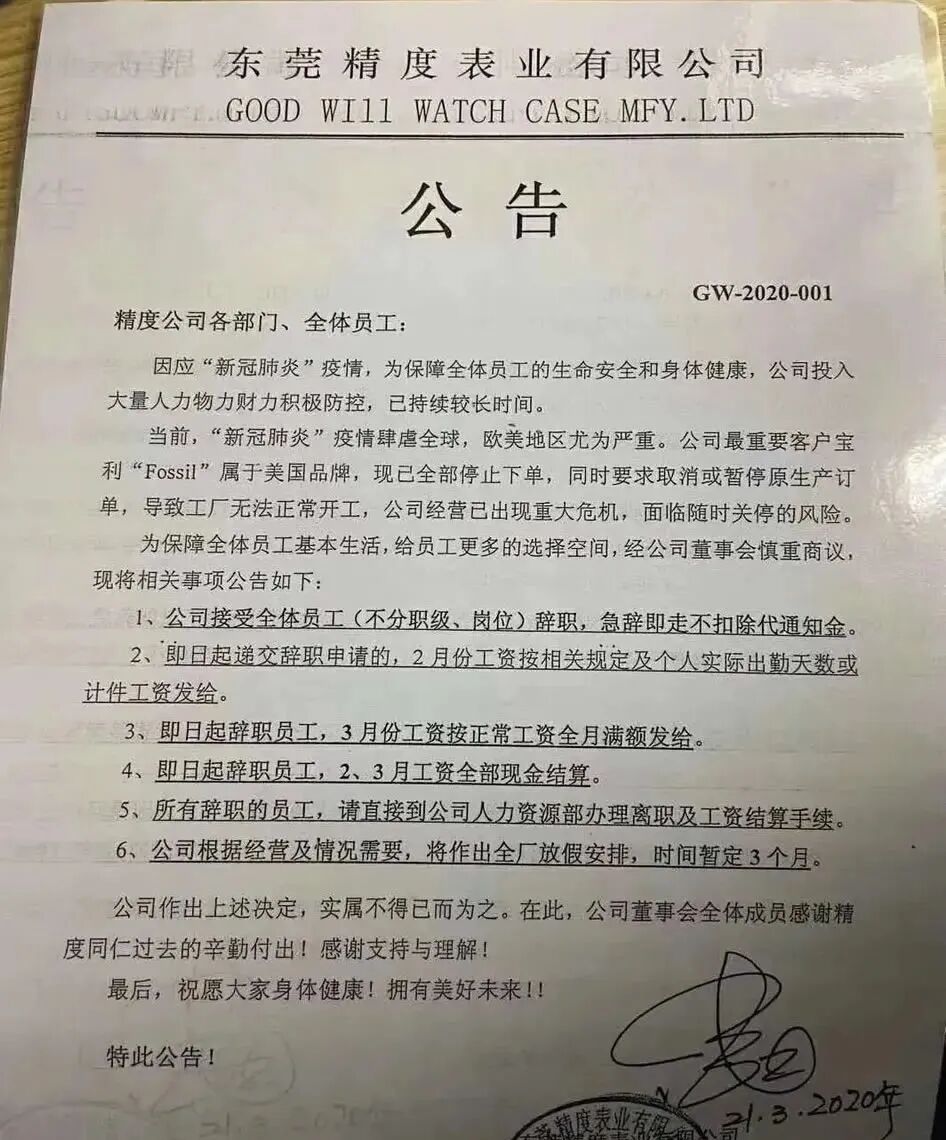 东莞精度表业有限公司
GOOD WIll WATCH CASE MFY.LTD
公告
GW-2020-001
精度公司各部门、全体员工：
因应“新冠肺炎”疫情，为保障全体员工的生命安全和身体健康，公司投入
大量人力物力财力积极防控，已持续较长时间。
当前，“新冠肺炎”疫情肆虐全球，欧美地区尤为严重。公司最重要客户宝
利“Fossil”属于美国品牌，现已全部停止下单，同时要求取消或暂停原生产订
单，导致工厂无法正常开工，公司经营已出现重大危机，面临随时关停的风险。
为保障全体员工基本生活，给员工更多的选择空间，经公司董事会慎重商议，
现将相关事项公告如下：
1、公司接受全体员工（不分职级、岗位）辞职，急辞即走不扣除代通知金。
2、即日起递交辞职申请的，2月份工资按相关规定及个人实际出勤天数或
计件工资发给。
3、即日起辞职员工，3月份工资按正常工资全月满额发给。
4、即日起辞职员工，2、3月工资全部现金结算。
5、所有辞职的员工，请直接到公司人力资源部办理离职及工资结算手续。
6、公司根据经营及情况需要，将作出全厂放假安排，时间暂定3个月。
公司作出上述决定，实属不得已而为之。在此，公司董事会全体成员感谢精
度同仁过去的辛勤付出！感谢支持与理解！
最后，祝愿大家身体健康！拥有美好未来！！
特此公告！
21.3.2020年
东莞精度表业有限